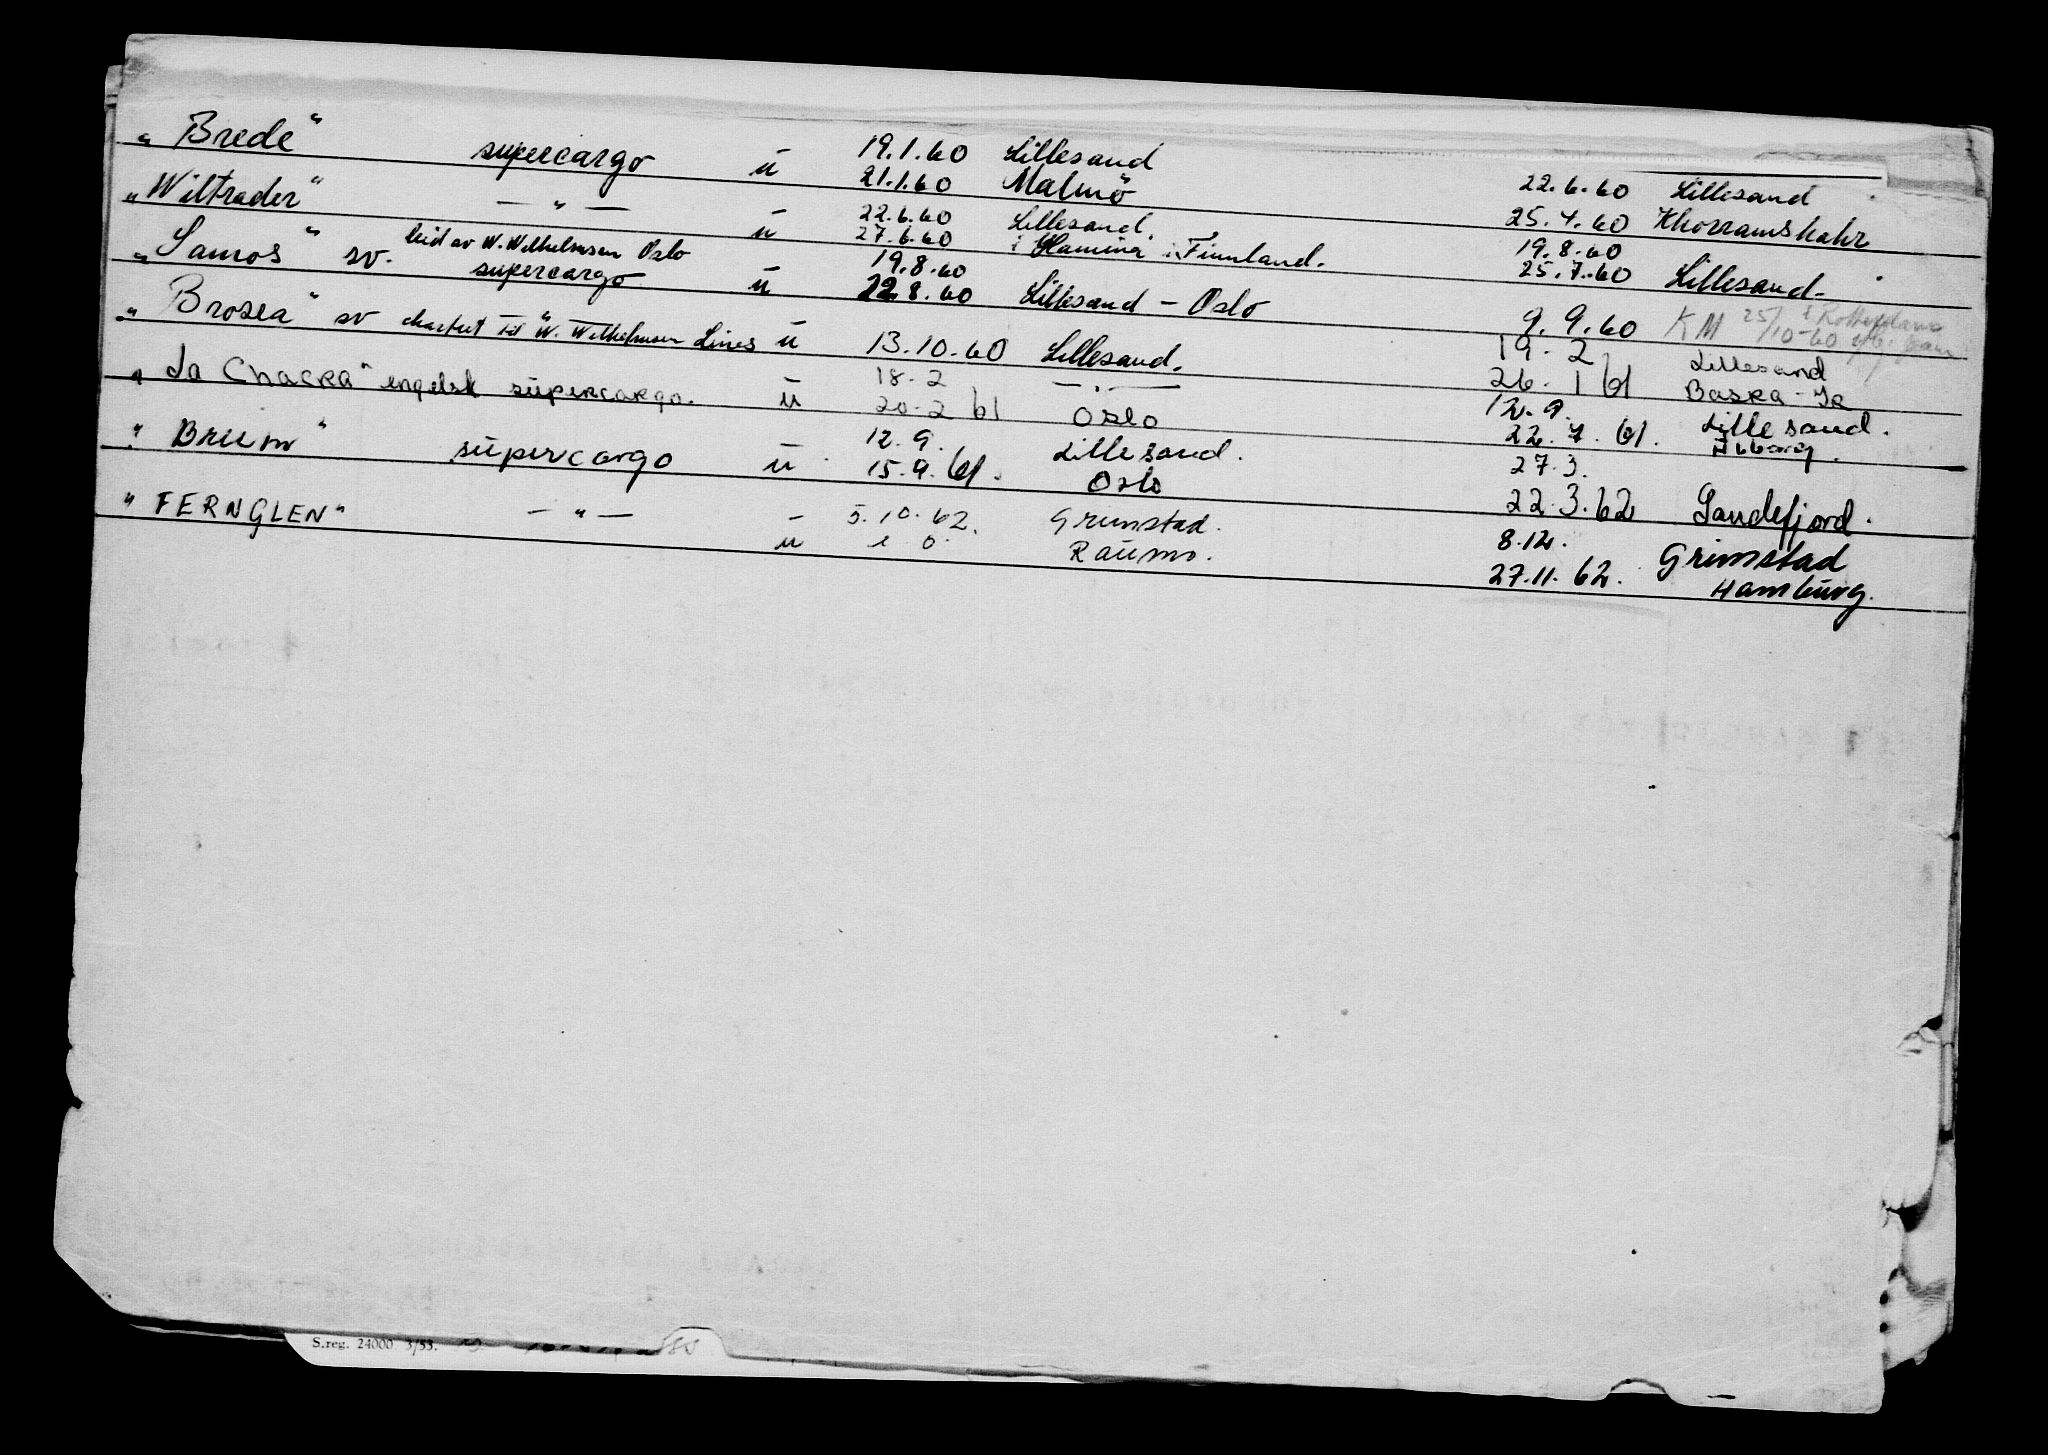 „ Brede“ supercargo u 19.1.60 Lillesand 22.6.60 Lillesand
21.1.60 Malmö 25.4.60 Khorramshahr
„Wiltrader“ — „ — u 22.6.60 Lillesand. 19.8.60
27.6.60 i Hamina i Finnland. 25.7.60 Lillesand.
„Samos“ sv. leid av W. Wilhelmsen Oslo 19.8.60
supercargo u 22.8.60 Lillesand - Oslo 9.9.60 KM 25/10-60 i Rotterdam
„ Brosea“ sv chartret til W. Wilhelmsen Lines u 13.10.60 Lillesand. 19.2 Lillesand
26.1 61 Basra - Ir
„ La Chacra“ engelsk supercargo. u 18-2 — „ — 12.9. Lillesand.
20-2 61 Oslo 22.7.61.
„ Brum“ supercargo u 12.9. Lillesand. 27.3.
15.9.61. Oslo 22.3.62 Sandefjord.
„ FERNGLEN“ — „ — - 5.10.62. Grimstad. 8.12. Grimstad
u Raumo. 27.11.62. Hamburg.
S.reg. 24000 3/53.